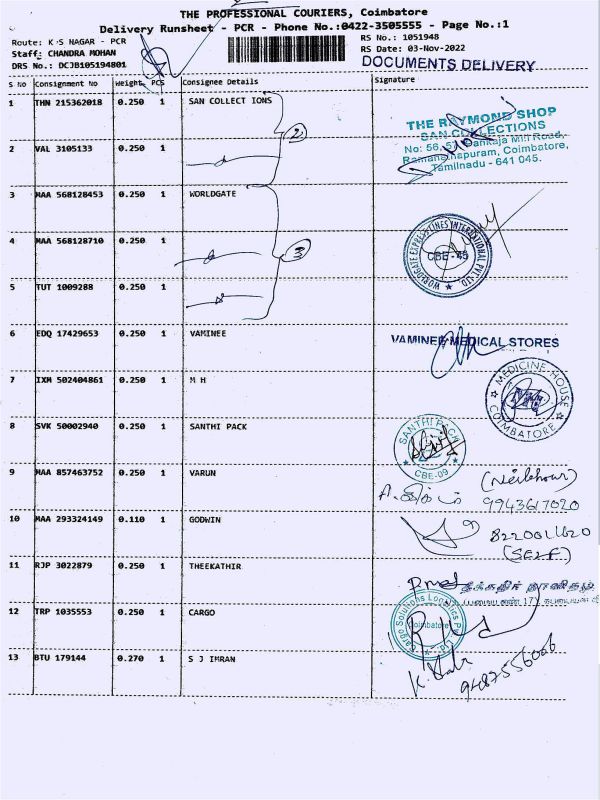 THE PROFESSIONAL COURIERS, Coimbatore
Delivery Runsheet - PCR - Phone No.:0422-3505555 - Page No.:1
Route: K S NAGAR - PCR
Staff: CHANDRA MOHAN
DRS No.: DCJB105194801
RS No.: 1051948
RS Date: 03-Nov-2022
DOCUMENTS DELIVERY
S No Consignment No Weight PCS Consignee Details Signature
1 THN 215362018 0.250 1 SAN COLLECT IONS
THE RAYMOND SHOP
SAN COLLECTIONS
No: 56, Pankaja Mill Road,
Ramanathapuram, Coimbatore,
Tamilnadu - 641 045.
2 VAL 3105133 0.250 1
2
3 MAA 568128453 0.250 1 WORLDGATE
WORLDGATE EXPRESS LINES INTERNATIONAL PVT. LTD.
CBE-45
4 MAA 568128710 0.250 1
3
5 TUT 1009288 0.250 1
6 EDQ 17429653 0.250 1 VAMINEE
VAMINEE MEDICAL STORES
7 IXM 502404861 0.250 1 M H
MEDICINE HOUSE
COIMBATORE
8 SVK 50002940 0.250 1 SANTHI PACK
SANTHI PACK
CBE-09
9 MAA 857463752 0.250 1 VARUN
(Neibhour)
9943617020
10 MAA 293324149 0.110 1 GODWIN
(SELF)
11 RJP 3022879 0.250 1 THEEKATHIR
தீக்கதிர் நாளிதழ்
12 TRP 1035553 0.250 1 CARGO
Cargo Solutions Logistics
Coimbatore
13 BTU 179144 0.270 1 S J IMRAN
9487556066